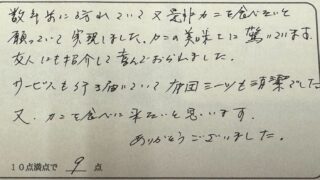 数年前に訪れていて又是非カニを食べたいと
願っていて実現しました。カニの美味しさに驚いています。
友人にも紹介して喜んでおられました。
サービスも行き届いていて布団シーツも清潔でした
又、カニを食べに来たいと思います。
ありがとうございました。
10点満点で 9 点